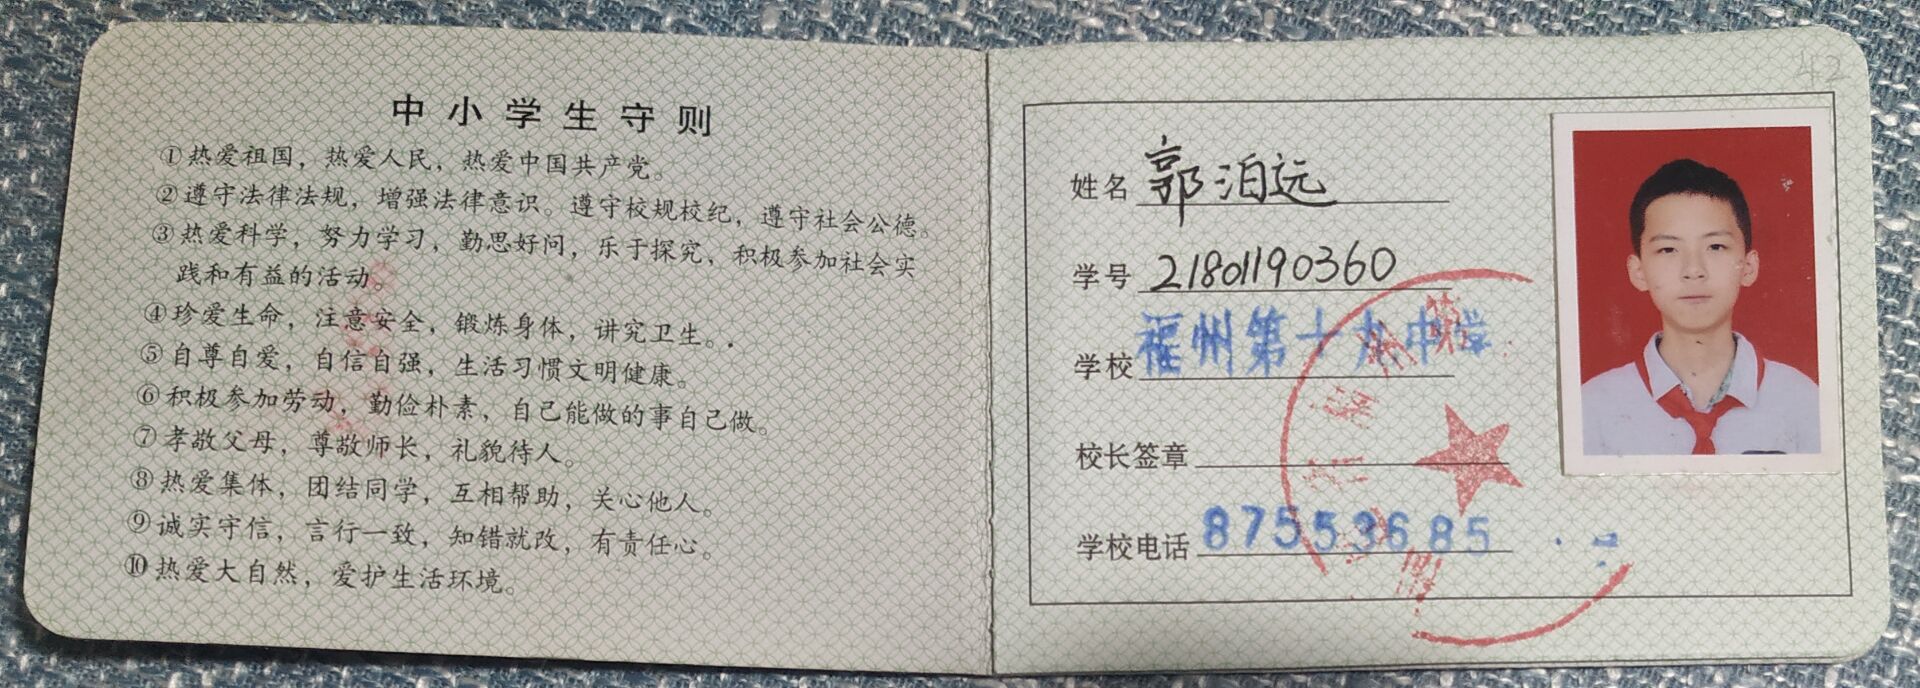 中小学生守则
①热爱祖国，热爱人民，热爱中国共产党。
②遵守法律法规，增强法律意识。遵守校规校纪，遵守社会公德。
③热爱科学，努力学习，勤思好问，乐于探究，积极参加社会实
践和有益的活动。
④珍爱生命，注意安全，锻炼身体，讲究卫生。
⑤自尊自爱，自信自强，生活习惯文明健康。
⑥积极参加劳动，勤俭朴素，自己能做的事自己做。
⑦孝敬父母，尊敬师长，礼貌待人。
⑧热爱集体，团结同学，互相帮助，关心他人。
⑨诚实守信，言行一致，知错就改，有责任心。
⑩热爱大自然，爱护生活环境。
42
姓名 郭泊远
学号 21801190360
学校 福州第十九中学
校长签章
学校电话 87553685